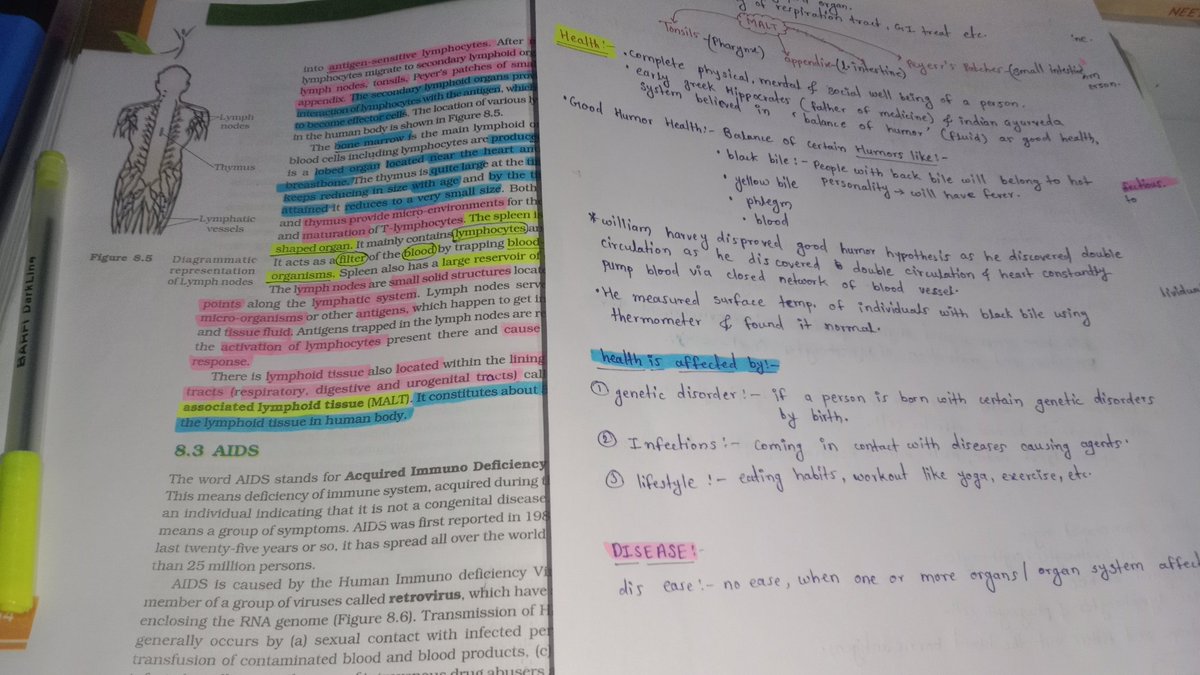 into antigen-sensitive lymphocytes. After
lymphocytes migrate to secondary lymphoid
lymph nodes, tonsils, Peyer's patches of
appendix. The secondary lymphoid organs
interaction of lymphocytes with the antigen,
to become effector cells. The location of various
in the human body is shown in Figure 8.5.
The bone marrow is the main lymphoid
blood cells including lymphocytes are
is a lobed organ located near the heart
breastbone. The thymus is quite large at the
keeps reducing in size with age and by the
attained it reduces to a very small size. Both
and thymus provide micro-environments for the
and maturation of T-lymphocytes. The spleen
shaped organ. It mainly contains lymphocytes
It acts as a filter of the blood by trapping blood-
organisms. Spleen also has a large reservoir of
The lymph nodes are small solid structures
points along the lymphatic system. Lymph nodes
micro-organisms or other antigens, which happen to get
and tissue fluid. Antigens trapped in the lymph nodes are
the activation of lymphocytes present there and cause
response.
There is lymphoid tissue also located within the lining
tracts (respiratory, digestive and urogenital tracts)
associated lymphoid tissue (MALT). It constitutes about
the lymphoid tissue in human body.
Lymph
nodes
Thymus
Lymphatic
vessels
Figure 8.5 Diagrammatic
representation
of Lymph nodes
8.3 AIDS
The word AIDS stands for Acquired Immuno Deficiency
This means deficiency of immune system, acquired during
an individual indicating that it is not a congenital disease
means a group of symptoms. AIDS was first reported in
last twenty-five years or so, it has spread all over the world
than 25 million persons.
AIDS is caused by the Human Immuno deficiency
member of a group of viruses called retrovirus, which have
enclosing the RNA genome (Figure 8.6). Transmission of
generally occurs by (a) sexual contact with infected
transfusion of contaminated blood and blood products, (c)
drug abusers
DarkLine
NEE
organ.
of respiration tract, G.I. treat etc.
MALT
Tonsils (Pharynx)
appendix (L.intestine)
Peyer's Patches (small intestine)
Health:-
• complete physical, mental & social well being of a person.
• early greek Hippocrates (father of medicine) & indian ayurveda
system believed in 'balance of humor' (fluid) as good health,
• Good Humor Health:- Balance of certain Humors like:-
• black bile:- People with back bile will belong to hot
personality → will have fever.
• yellow bile
• phlegm
• blood
* william harvey disproved good humor hypothesis as he discovered double
circulation as he discovered double circulation & heart constantly
pump blood via closed network of blood vessel.
• He measured surface temp. of individuals with black bile using
thermometer & found it normal.
health is affected by:-
① genetic disorder:- if a person is born with certain genetic disorders
by birth.
② Infections:- coming in contact with diseases causing agents.
③ lifestyle:- eating habits, workout like yoga, exercise, etc.
DISEASE:-
dis ease:- no ease, when one or more organs/ organ system